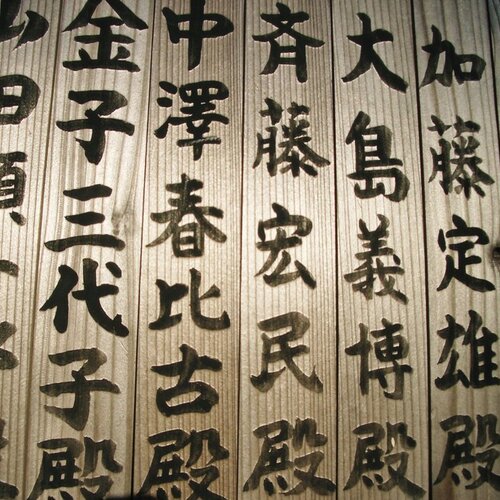 加藤定雄殿
大島義博殿
斉藤宏民殿
中澤春比古殿
金子三代子殿
山田順